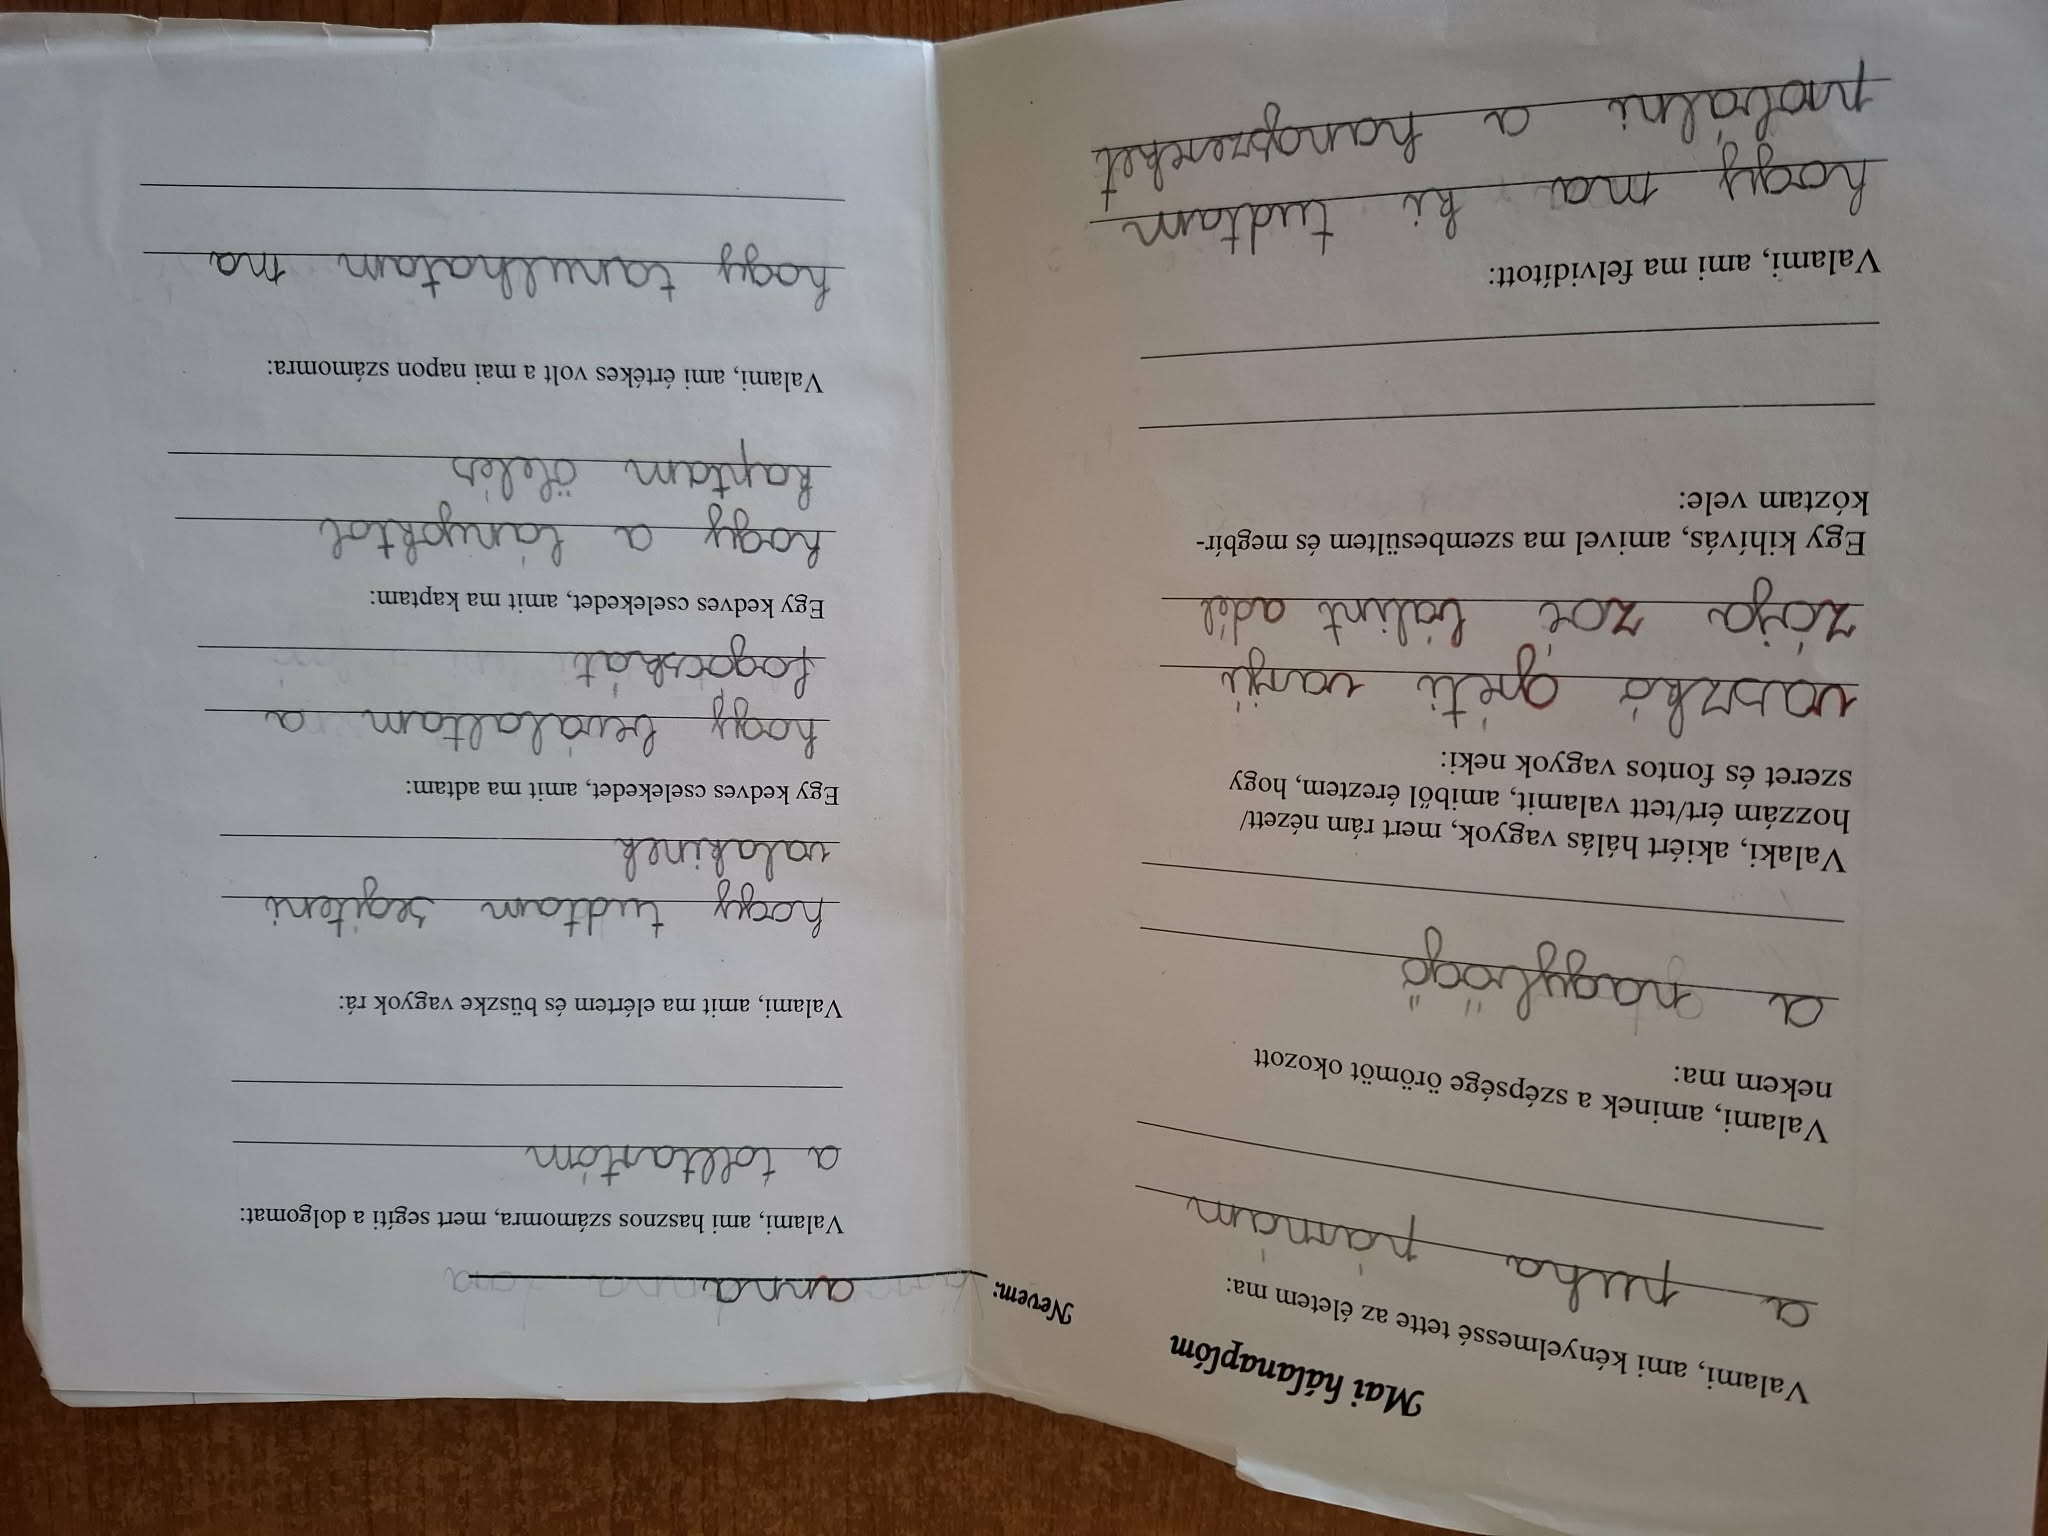 Mai hálanaplóm
Valami, ami kényelmessé tette az életem ma:
a puha párnám
Valami, aminek a szépsége örömöt okozott
nekem ma:
a nagylvögő
Valaki, akiért hálás vagyok, mert rám nézett/
hozzám ért/tett valamit, amiből éreztem, hogy
szeret és fontos vagyok neki:
vaszkó gréti varjú
zója zoé bálint adél
Egy kihívás, amivel ma szembesültem és megbír-
kóztam vele:
Valami, ami ma felvidított:
hogy ma ki tudtam
probálni a hangszereket
Nevem: anna
Valami, ami hasznos számomra, mert segíti a dolgomat:
a tolltartóm
Valami, amit ma elértem és büszke vagyok rá:
hogy tudtam segiteni
valakinek
Egy kedves cselekedet, amit ma adtam:
hogy beválaltam a
fogócskát
Egy kedves cselekedet, amit ma kaptam:
hogy a lányoktol
kaptam ölelés
Valami, ami értékes volt a mai napon számomra:
hogy tanulhatam ma